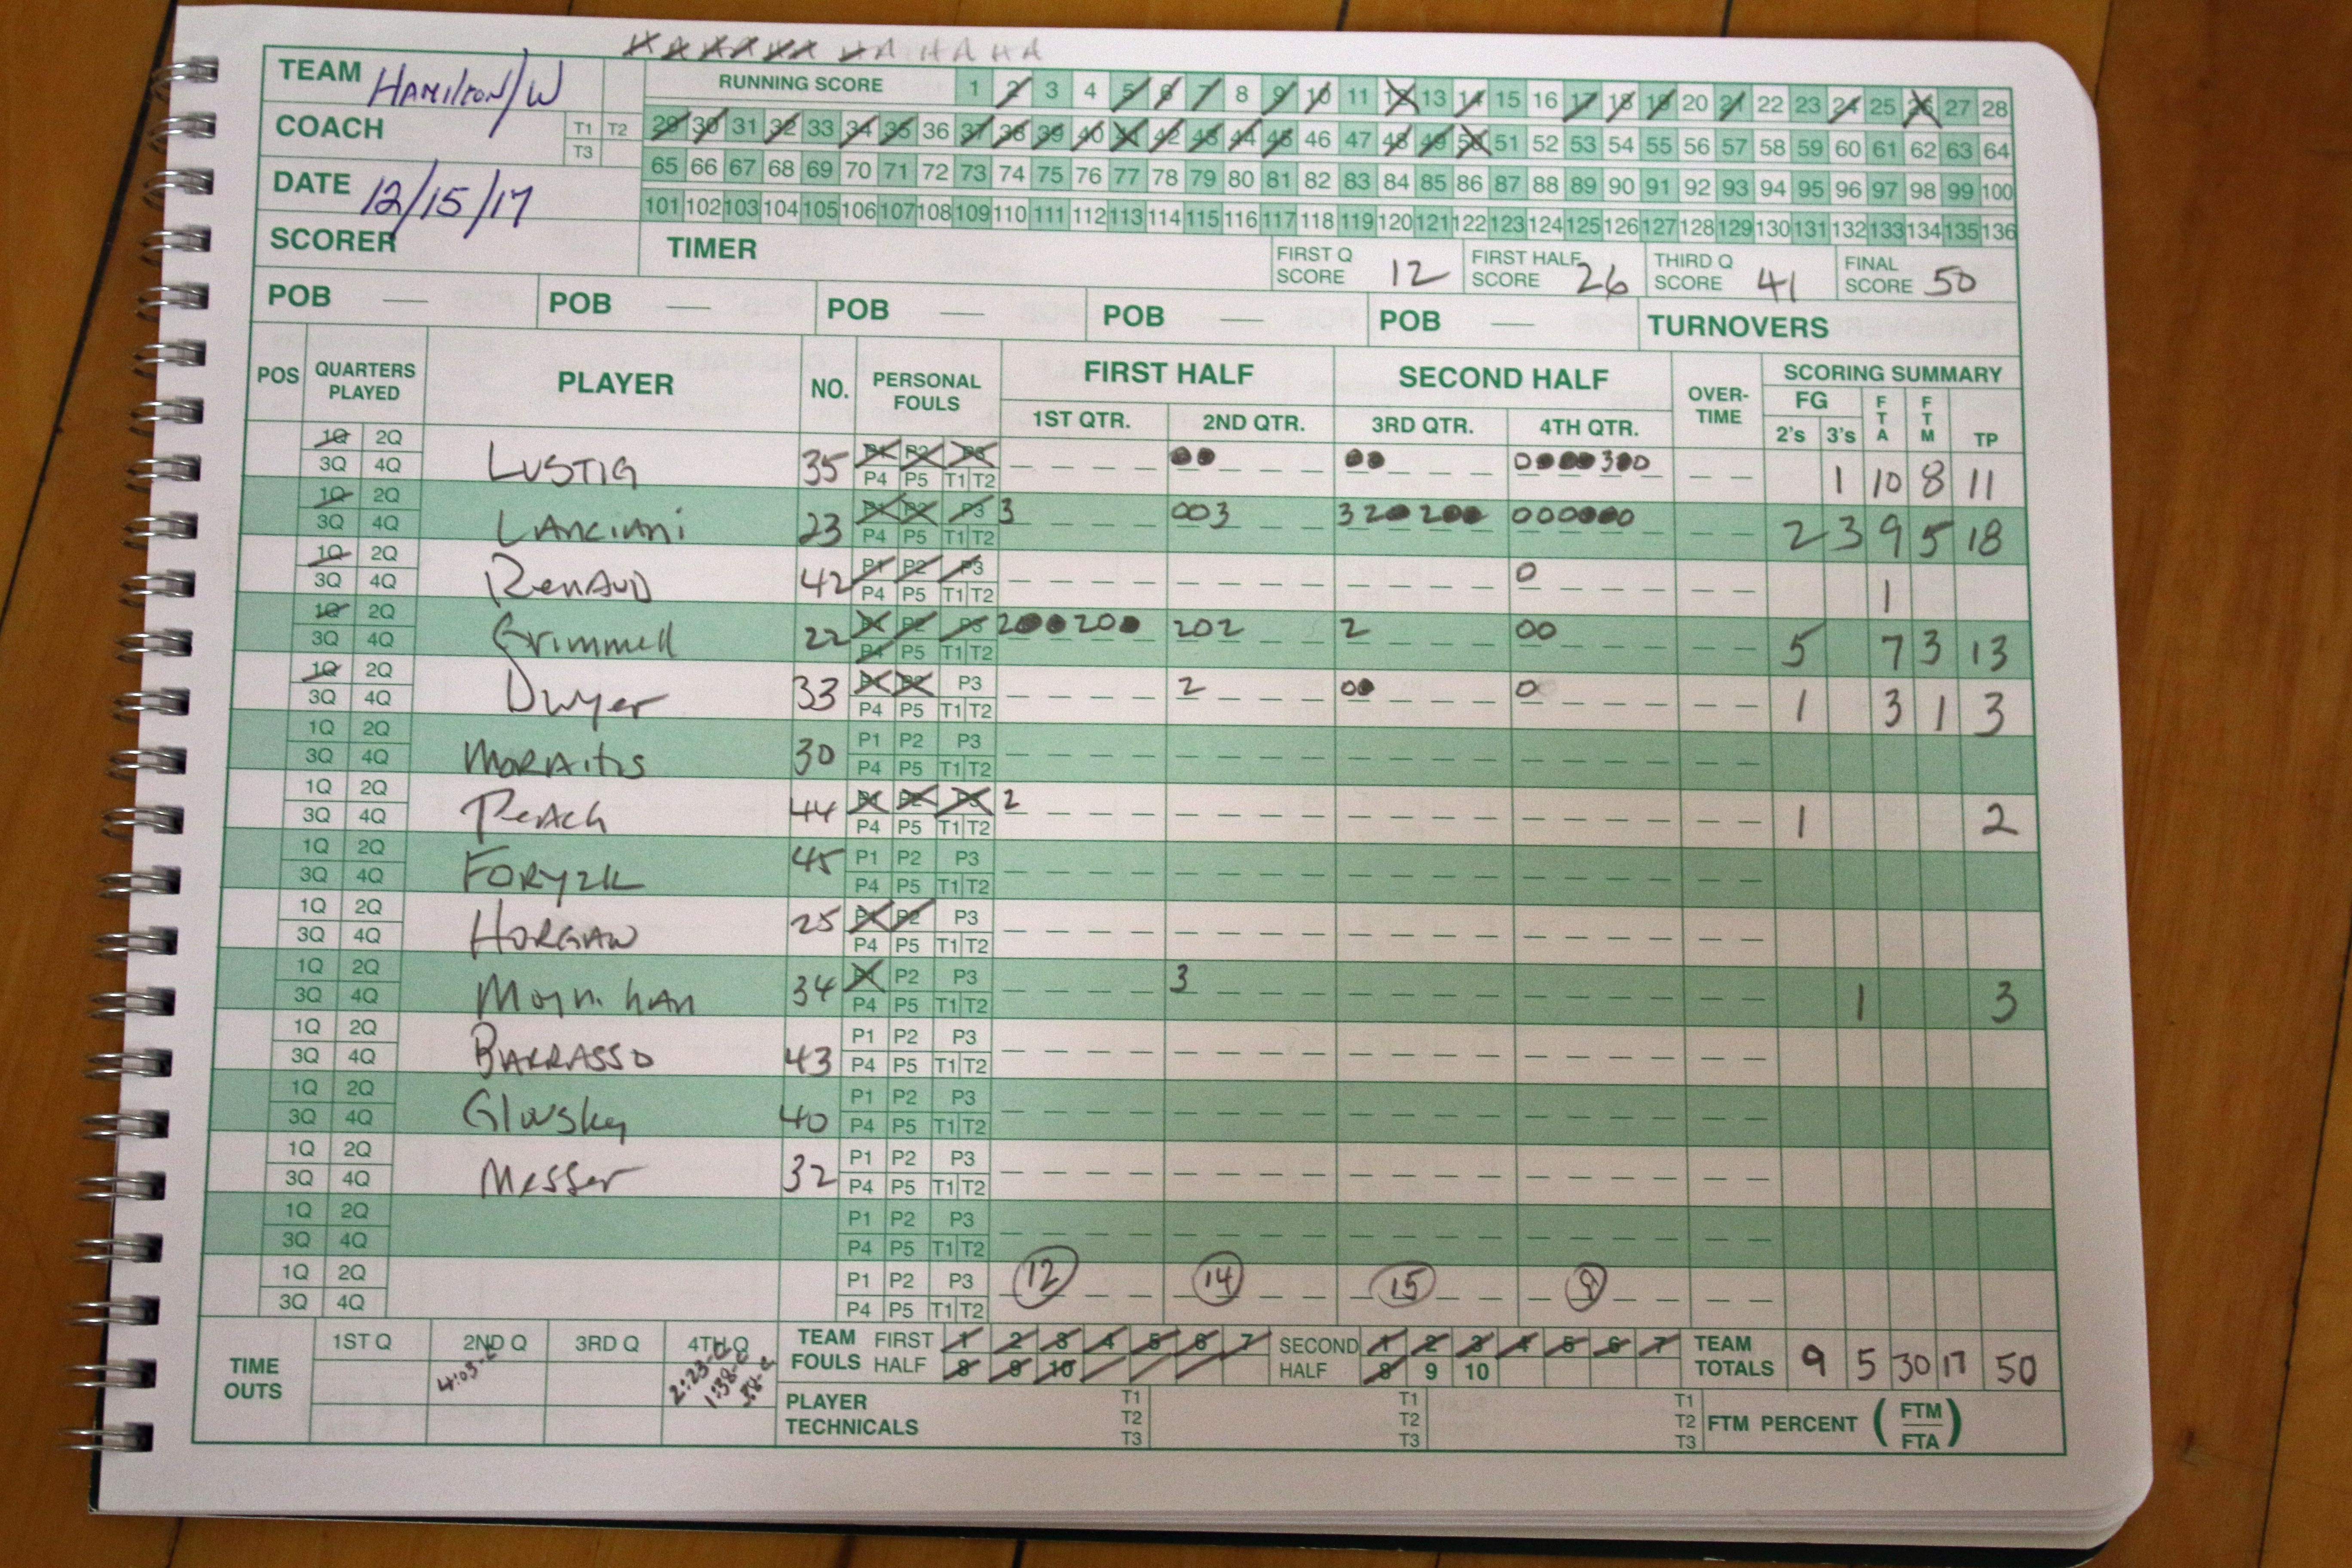 HA HA HA HA HA HA
TEAM Hamilton/W
RUNNING SCORE 1 2 3 4 5 6 7 8 9 10 11 12 13 14 15 16 17 18 19 20 21 22 23 24 25 26 27 28
COACH T1 T2 T3
29 30 31 32 33 34 35 36 37 38 39 40 41 42 43 44 45 46 47 48 49 50 51 52 53 54 55 56 57 58 59 60 61 62 63 64
65 66 67 68 69 70 71 72 73 74 75 76 77 78 79 80 81 82 83 84 85 86 87 88 89 90 91 92 93 94 95 96 97 98 99 100
DATE 12/15/17
101 102 103 104 105 106 107 108 109 110 111 112 113 114 115 116 117 118 119 120 121 122 123 124 125 126 127 128 129 130 131 132 133 134 135 136
SCORER TIMER FIRST Q SCORE 12 FIRST HALF SCORE 26 THIRD Q SCORE 41 FINAL SCORE 50
POB — POB — POB — POB — POB — TURNOVERS
POS QUARTERS PLAYED PLAYER NO. PERSONAL FOULS FIRST HALF SECOND HALF OVER-TIME SCORING SUMMARY
1ST QTR. 2ND QTR. 3RD QTR. 4TH QTR. FG 2's 3's FTA FTM TP
1Q 2Q P1 P2 P3 ●● ●● 0●●●3●0
3Q 4Q LUSTIG 35 P4 P5 T1 T2 1 10 8 11
1Q 2Q P1 P2 P3 3 003 320200 000●●0
3Q 4Q LANCIANI 23 P4 P5 T1 T2 2 3 9 5 18
1Q 2Q P1 P2 P3 0
3Q 4Q RENAUD 42 P4 P5 T1 T2 1
1Q 2Q P1 P2 P3 2●●20● 202 2 00
3Q 4Q Grimmell 22 P4 P5 T1 T2 5 7 3 13
1Q 2Q P1 P2 P3 2 0● 0
3Q 4Q Dwyer 33 P4 P5 T1 T2 1 3 1 3
1Q 2Q P1 P2 P3
3Q 4Q MORAITIS 30 P4 P5 T1 T2
1Q 2Q P1 P2 P3 2
3Q 4Q PEACH 44 P4 P5 T1 T2 1 2
1Q 2Q P1 P2 P3
3Q 4Q FORYZK 45 P4 P5 T1 T2
1Q 2Q P1 P2 P3
3Q 4Q HORGAN 25 P4 P5 T1 T2
1Q 2Q P1 P2 P3 3
3Q 4Q Moynihan 34 P4 P5 T1 T2 1 3
1Q 2Q P1 P2 P3
3Q 4Q BARRASSO 43 P4 P5 T1 T2
1Q 2Q P1 P2 P3
3Q 4Q Glovsky 40 P4 P5 T1 T2
1Q 2Q P1 P2 P3
3Q 4Q Messer 32 P4 P5 T1 T2
1Q 2Q P1 P2 P3
3Q 4Q P4 P5 T1 T2
1Q 2Q P1 P2 P3 12 14 15 9
3Q 4Q P4 P5 T1 T2
TIME OUTS 1ST Q 2ND Q 3RD Q 4TH Q
4:03-C 2:23-C 1:38-C :58-C
TEAM FOULS FIRST HALF 1 2 3 4 5 6 7 8 9 10 SECOND HALF 1 2 3 4 5 6 7 8 9 10 TEAM TOTALS 9 5 30 17 50
PLAYER TECHNICALS T1 T2 T3 T1 T2 T3 T1 T2 T3 FTM PERCENT (FTM/FTA)